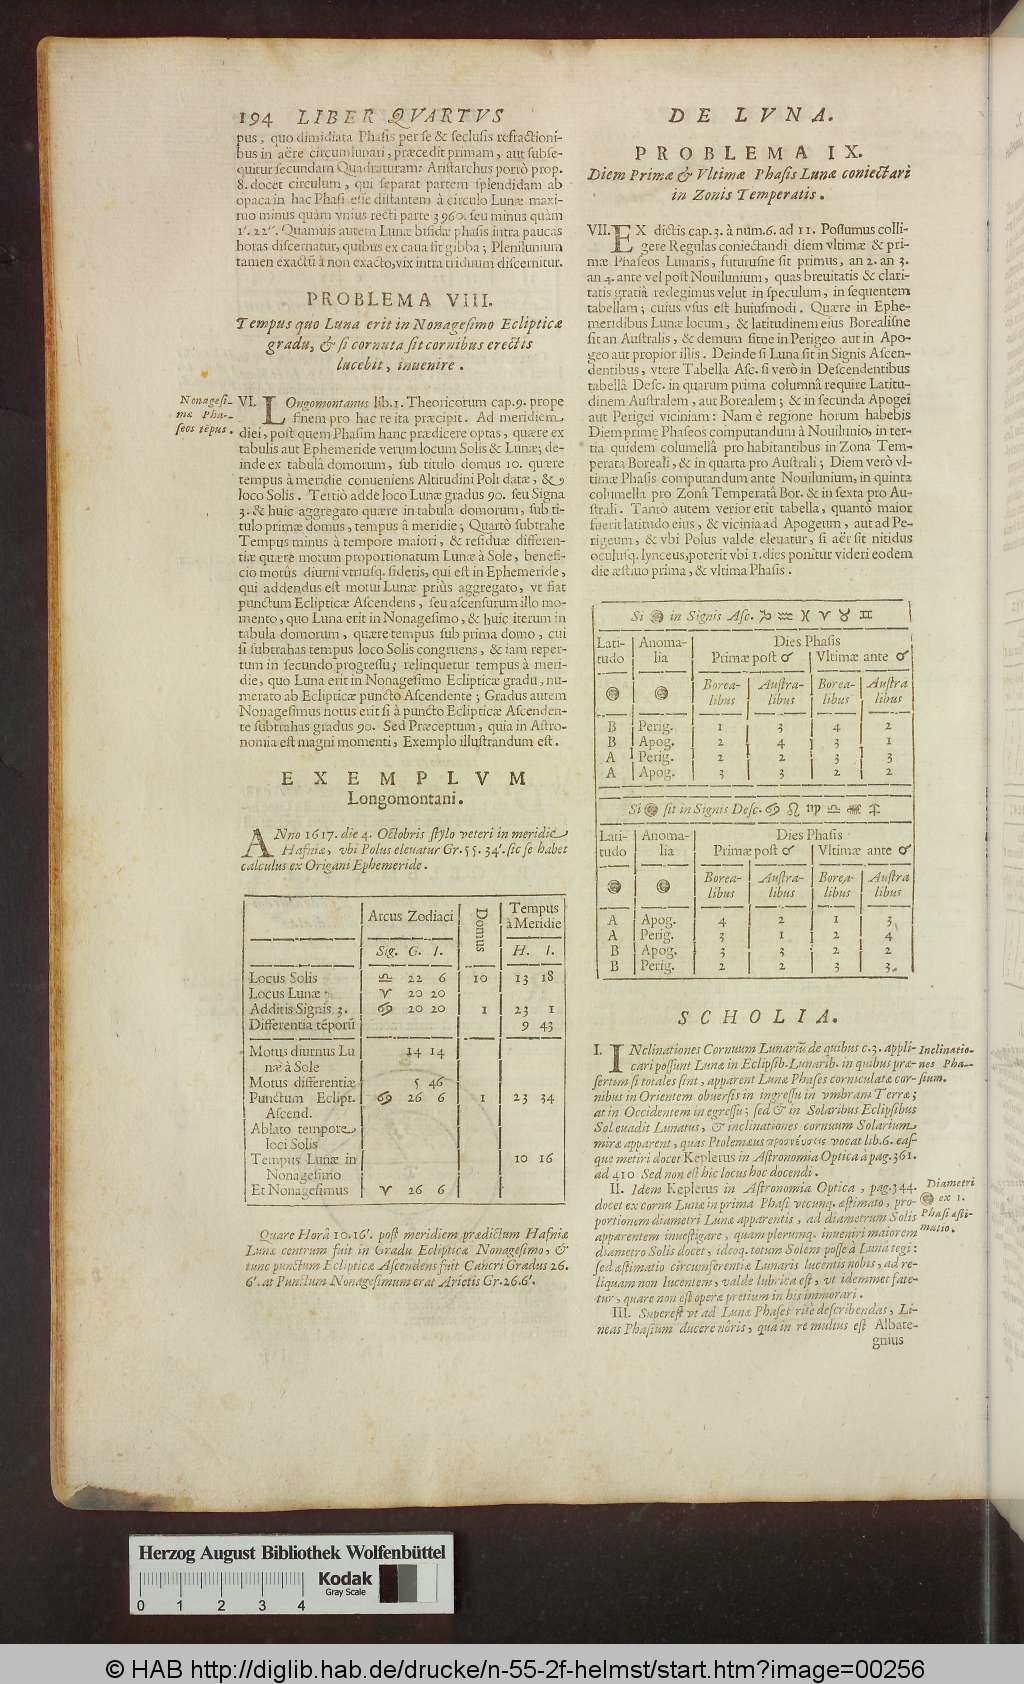 194 LIBER QVARTVS
pus, quo dimidiata Phasis per se & seclusis refractioni-
bus in aëre circumlunari, præcedit primam, aut subse-
quitur secundam Quadraturam: Aristarchus porrò prop.
8. docet circulum, qui separat partem splendidam ab
opaca in hac Phasi esse distantem à circulo Lunæ maxi-
mo minus quàm vnius recti parte 3960. seu minus quàm
1'. 22''. Quamuis autem Lunæ bisidæ phasis intra paucas
horas discernatur, quibus ex caua fit gibba; Plenilunium
tamen exactũ à non exacto, vix intra triduum discernitur.
PROBLEMA VIII.
Tempus quo Luna erit in Nonagesimo Eclipticæ
gradu, & si cornuta sit cornibus erectis
lucebit, inuenire.
Nonagesi-
mæ Pha-
seos tẽpus.
VI. LOngomontanus lib. 1. Theoricorum cap. 9. prope
finem pro hac re ita præcipit. Ad meridiem
diei, post quem Phasim hanc prædicere optas, quære ex
tabulis aut Ephemeride verum locum Solis & Lunæ; de-
inde ex tabulâ domorum, sub titulo domus 10. quære
tempus à meridie conueniens Altitudini Poli datæ, &
loco Solis. Tertiò adde loco Lunæ gradus 90. seu Signa
3. & huic aggregato quære in tabula domorum, sub ti-
tulo primæ domus, tempus à meridie; Quartò subtrahe
Tempus minus à tempore maiori, & residuæ differen-
tiæ quære motum proportionatum Lunæ à Sole, benefi-
cio motûs diurni vtriusq. sideris, qui est in Ephemeride,
qui addendus est motui Lunæ priùs aggregato, vt fiat
punctum Eclipticæ Ascendens, seu ascensurum illo mo-
mento, quo Luna erit in Nonagesimo, & huic iterum in
tabula domorum, quære tempus sub prima domo, cui
si subtrahas tempus loco Solis congruens, & iam reper-
tum in secundo progressu; relinquetur tempus à meri-
die, quo Luna erit in Nonagesimo Eclipticæ gradu, nu-
merato ab Eclipticæ puncto Ascendente; Gradus autem
Nonagesimus notus erit si à puncto Eclipticæ Ascenden-
te subtrahas gradus 90. Sed Præceptum, quia in Astro-
nomia est magni momenti, Exemplo illustrandum est.
EXEMPLVM
Longomontani.
ANno 1617. die 4. Octobris stylo veteri in meridie
Hafniæ, vbi Polus eleuatur Gr. 55. 34'. sic se habet
calculus ex Origani Ephemeride.
Arcus Zodiaci Domus Tempus à Meridie
Sig. G. I. H. I.
Locus Solis ♎ 22 6 10 13 18
Locus Lunæ ♈ 20 20
Additis Signis 3. ♋ 20 20 1 23 1
Differentia tẽporũ 9 43
Motus diurnus Lu
næ à Sole 14 14
Motus differentiæ 5 46
Punctum Eclipt.
Ascend. ♋ 26 6 1 23 34
Ablato tempore
loci Solis
Tempus Lunæ in
Nonagesimo 10 16
Et Nonagesimus ♈ 26 6
Quare Horâ 10. 16'. post meridiem prædictum Hafniæ
Lunæ centrum fuit in Gradu Eclipticæ Nonagesimo, &
tunc punctum Eclipticæ Ascendens fuit Cancri Gradus 26.
6'. at Punctum Nonagesimum erat Arietis Gr. 26. 6'.
DE LVNA.
PROBLEMA IX.
Diem Primæ & Vltimæ Phasis Lunæ coniectari
in Zonis Temperatis.
VII. EX dictis cap. 3. à num. 6. ad 11. Possumus colli-
gere Regulas coniectandi diem vltimæ & pri-
mæ Phaseos Lunaris, futurusne sit primus, an 2. an 3.
an 4. ante vel post Nouilunium, quas breuitatis & clari-
tatis gratiâ redegimus velut in speculum, in sequentem
tabellam; cuius vsus est huiusmodi. Quære in Ephe-
meridibus Lunæ locum, & latitudinem eius Borealisne
sit an Australis, & demum sitne in Perigeo aut in Apo-
geo aut propior illis. Deinde si Luna sit in Signis Ascen-
dentibus, vtere Tabella Asc. si verò in Descendentibus
tabellâ Desc. in quarum prima columnâ require Latitu-
dinem Australem, aut Borealem; & in secunda Apogei
aut Perigei viciniam: Nam è regione horum habebis
Diem primę Phaseos computandum à Nouilunio, in ter-
tia quidem columellâ pro habitantibus in Zona Tem-
perata Boreali, & in quarta pro Australi; Diem verò vl-
timæ Phasis computandum ante Nouilunium, in quinta
columella pro Zonâ Temperatâ Bor. & in sexta pro Au-
strali. Tantò autem verior erit tabella, quantò maior
fuerit latitudo eius, & vicinia ad Apogeum, aut ad Pe-
rigeum, & vbi Polus valde eleuatur, si aër sit nitidus
oculusq. lynceus, poterit vbi 1. dies ponitur videri eodem
die æstiuo prima, & vltima Phasis.
Si ☽ in Signis Asc. ♑ ♒ ♓ ♈ ♉ ♊
Lati-
tudo Anoma-
lia Dies Phasis
Primæ post ☌ Vltimæ ante ☌
☽ ☽ Borea-
libus Austra-
libus Borea-
libus Austra
libus
B Perig. 1 3 4 2
B Apog. 2 4 3 1
A Perig. 2 2 3 3
A Apog. 3 3 2 2
Si ☽ sit in Signis Desc. ♋ ♌ ♍ ♎ ♏ ♐
Lati-
tudo Anoma-
lia Dies Phasis
Primæ post ☌ Vltimæ ante ☌
☽ ☽ Borea-
libus Austra-
libus Borea-
libus Austra
libus
A Apog. 4 2 1 3
A Perig. 3 1 2 4
B Apog. 3 3 2 2
B Perig. 2 2 3 3
SCHOLIA.
I. INclinationes Cornuum Lunariũ, de quibus c. 3. appli-
cari possunt Lunæ in Eclipsib. Lunarib. in quibus præ-
sertim si totales sint, apparent Lunæ Phases corniculatæ cor-
nibus in Orientem obuersis in ingressu in vmbram Terræ;
at in Occidentem in egressu; sed & in Solaribus Eclipsibus
Sol euadit Lunatus, & inclinationes cornuum Solarium
miræ apparent, quas Ptolemæus προσνεύσεις vocat lib. 6. eas-
que metiri docet Keplerus in Astronomia Optica à pag. 361.
ad 410 Sed non est hic locus hoc docendi.
Inclinatio-
nes Pha-
sium.
II. Idem Keplerus in Astronomia Optica, pag. 344.
docet ex cornu Lunæ in prima Phasi vtcunq. æstimato, pro-
portionem diametri Lunæ apparentis, ad diametrum Solis
apparentem inuestigare, quam plerumq. inueniri maiorem
diametro Solis docet, ideoq. totum Solem posse à Luna tegi:
sed æstimatio circumferentiæ Lunaris lucentis nobis, ad re-
liquam non lucentem, valde lubrica est, vt idemmet fate-
tur, quare non est operæ pretium in his immorari.
Diametri
☽ ex 1.
Phasi æsti-
matio.
III. Superest vt ad Lunæ Phases ritè describendas, Li-
neas Phasium ducere nôris, qua in re multus est Albate-
gnius
Herzog August Bibliothek Wolfenbüttel
Kodak
Gray Scale
0 1 2 3 4
© HAB http://diglib.hab.de/drucke/n-55-2f-helmst/start.htm?image=00256